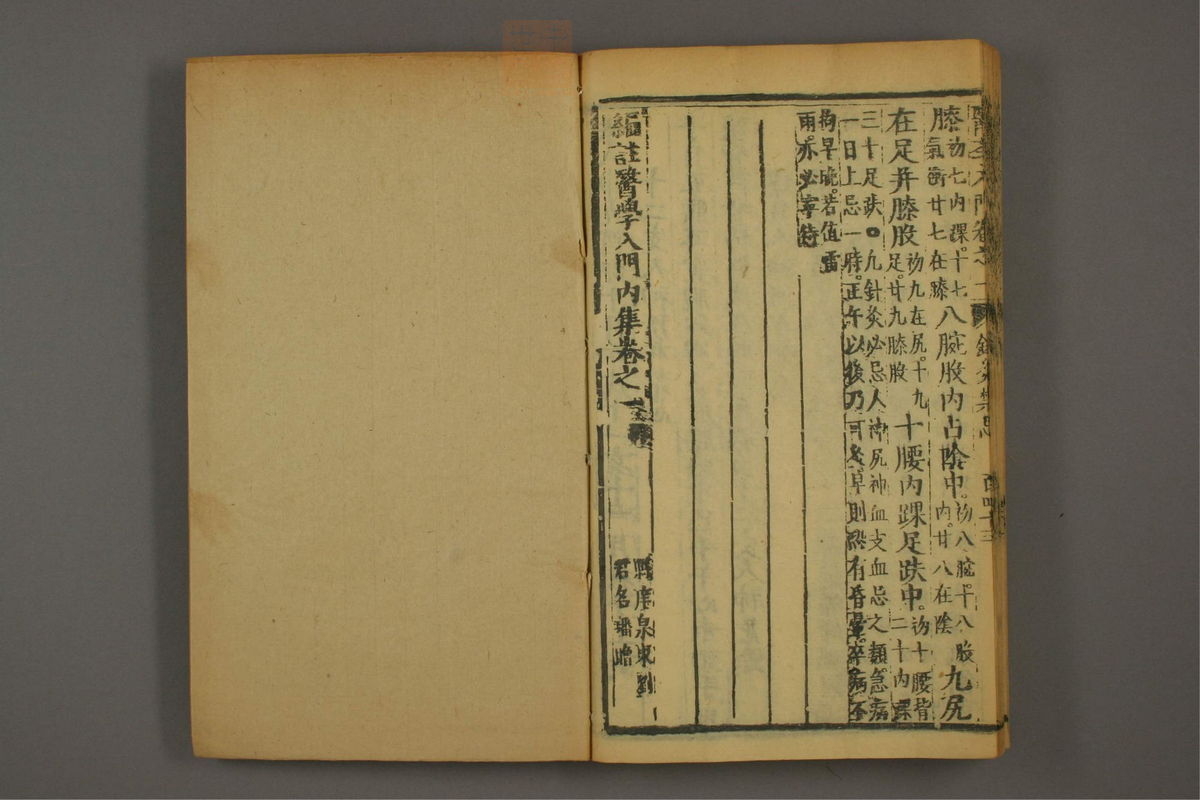 醫學入門卷之一 針灸禁忌 百四十三
膝初七內踝。十七氣衝廿七在膝八腕股內占陰中。初八腕。十八股內。廿八在陰九尻
在足并膝股初九在尻。十九足。廿九膝股十腰內踝足趺中。初十腰背二十內踝
三十足趺。○凡針灸必忌人神尻神血支血忌之類。急病
一日上忌一時。正午以後乃可灸。早則恐有昏暈。卒病不
拘早晚。若值雷
雨。亦必寧待
編註醫學入門內集卷之一
縣庠泉東劉
君名璠瞻